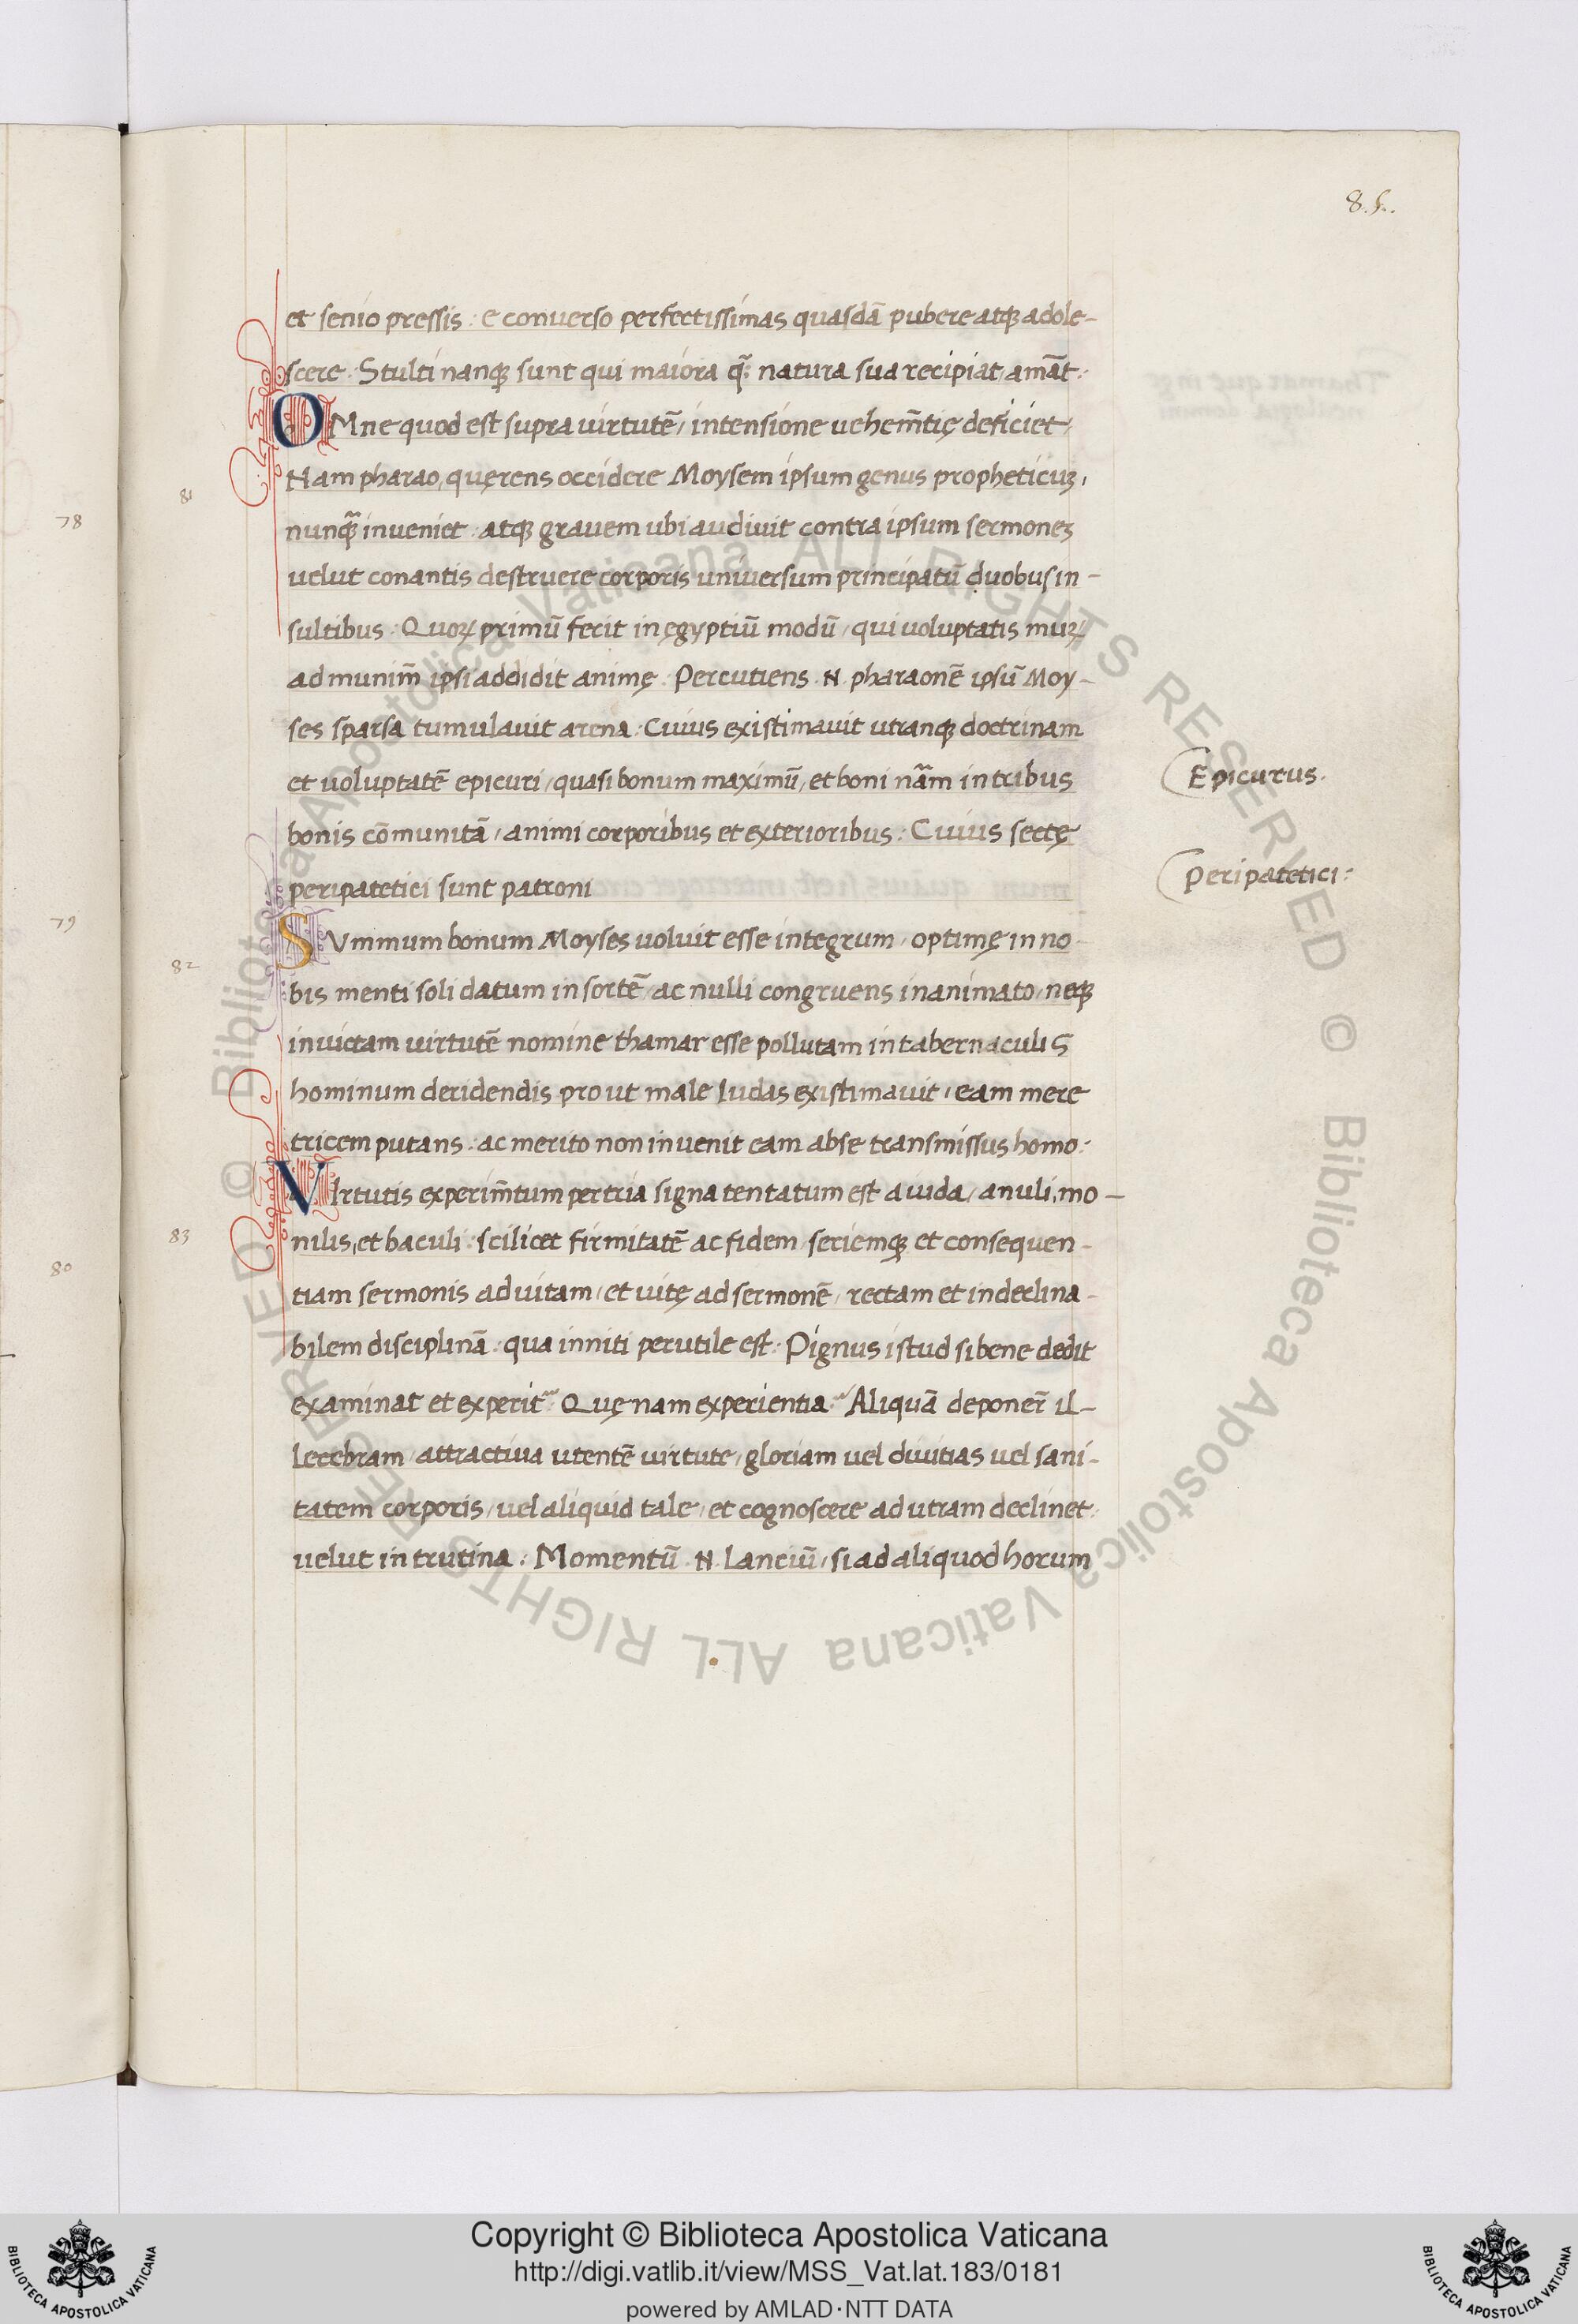 8.5.
et senio pressis : e conuerso perfectissimas quasdā pubere atqꝫ adole-
scere : Stulti nanqꝫ sunt qui maiora q̃ꝫ natura sua recipiat amāt :
OMne quod est supra uirtutē / intensione uehem̄tię deficiet /
Nam pharao, quęrens occidere Moysem ipsum genus propheticuꝫ,
nunq̃ꝫ inueniet : atqꝫ grauem ubi audiuit contra ipsum sermoneꝫ
uelut conantis destruere corporis uniuersum principatū duobus in-
sultibus : Quoꝝ primū fecit in ęgyptiū modū / qui uoluptatis muꝝ
ad munim̄ ipsi addidit animę : Percutiens .N. pharaonē ipsū Moy-
ses sparsa tumulauit arena : Cuius existimauit utranqꝫ doctrinam
et uoluptatē epicuri / quasi bonum maximū / et boni nãm in tribus
bonis cōmunitā / animi corporibus et exterioribus : Cuius sectę
peripatetici sunt patroni
SVmmum bonum Moyses uoluit esse integrum / optimę in no-
bis menti soli datum in sortē / ac nulli congruens inanimato / neqꝫ
inuictam uirtutē nomine thamar esse pollutam in tabernaculis
hominum deridendis prout male Iudas existimauit / eam mere
tricem putans : ac merito non inuenit eam abse transmissus homo :
VIrtutis experim̄tum per tria signa tentatum est a iuda / anuli, mo-
nilis, et baculi : scilicet firmitatē ac fidem / seriemqꝫ et consequen-
tiam sermonis ad uitam / et uitę ad sermonē / rectam et indeclina-
bilem disciplinā : qua inniti perutile est : Pignus istud si bene dedit
examinat et experit᷑ : Quęnam experientia : Aliquā deponer̄ il-
lecebram / attractiua utentē uirtute / gloriam uel diuitias uel sani-
tatem corporis / uel aliquid tale / et cognoscere ad utram declinet :
uelut in trutina : Momentū .N. lanciū / si ad aliquod horum
Epicurus.
Peripatetici :
81
82
83
78
79
80
© Biblioteca Apostolica Vaticana ALL RIGHTS RESERVED © Biblioteca Apostolica Vaticana ALL RIGHTS RESERVED
Copyright © Biblioteca Apostolica Vaticana
http://digi.vatlib.it/view/MSS_Vat.lat.183/0181
powered by AMLAD·NTT DATA
BIBLIOTECA APOSTOLICA VATICANA
BIBLIOTECA APOSTOLICA VATICANA